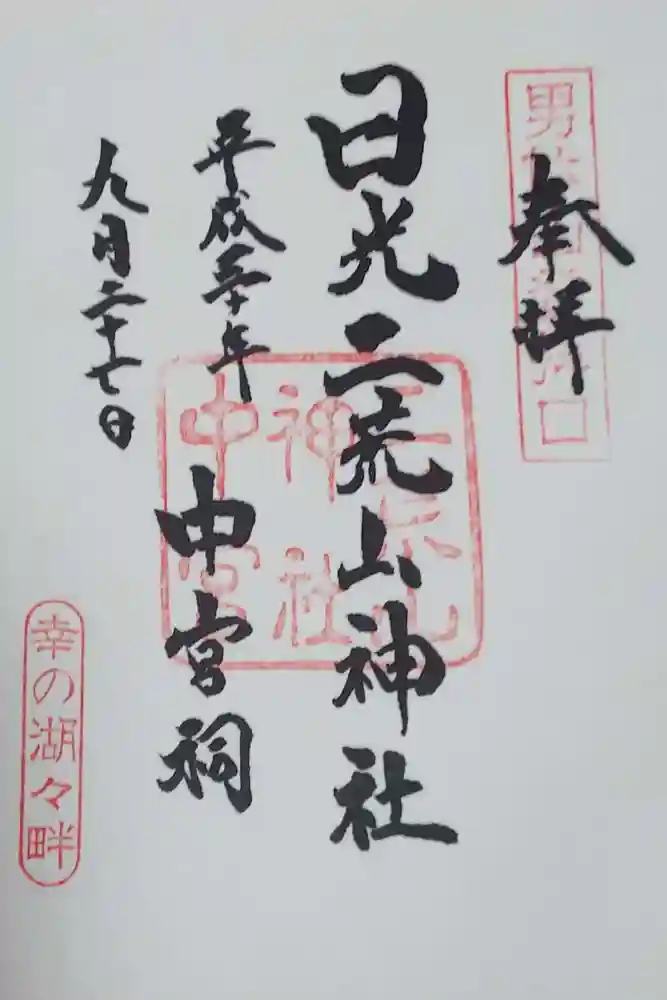 奉拝
日光二荒山神社
中宮祠
平成三十年
九月二十七日
二荒山
神社
中宮
幸の湖々畔